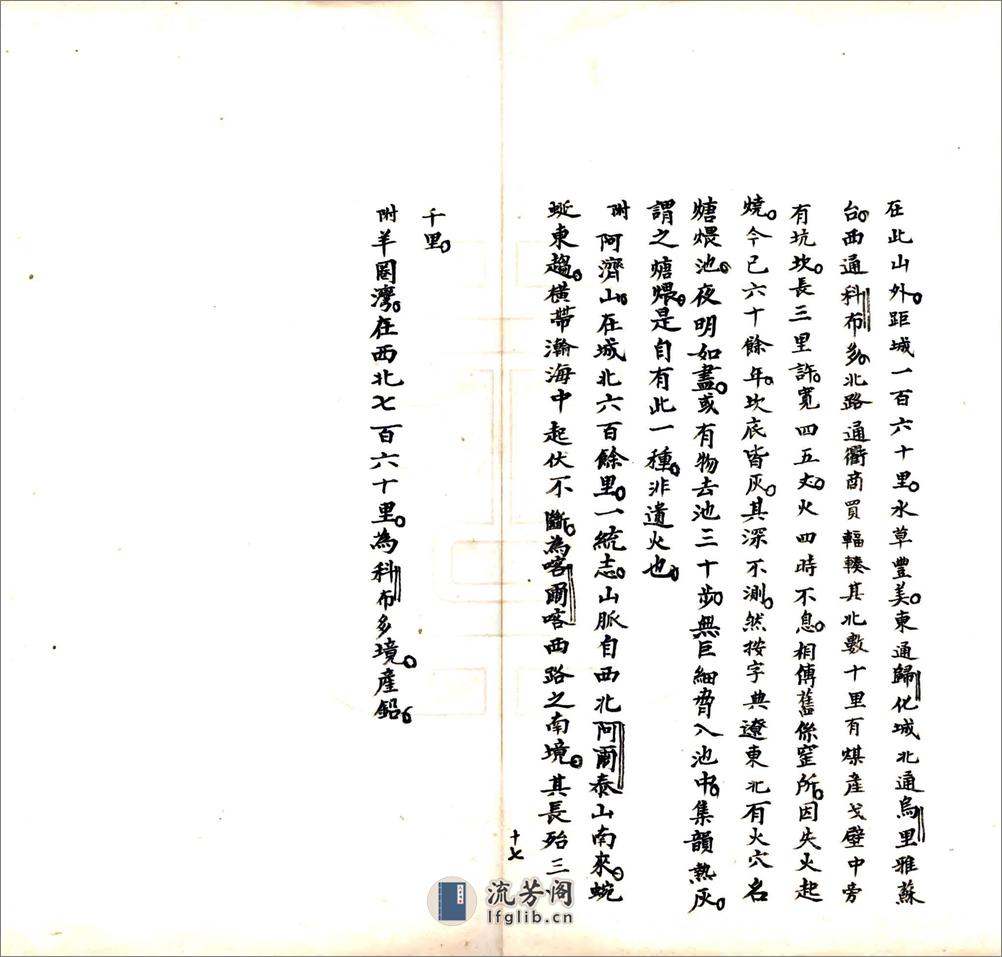 在此山外。距城一百六十里。水草豐美。東通歸化城北通烏里雅蘇
台。西通科布多。北路通衢商買輻輳其北數十里有煤產戈壁中旁
有坑坎。長三里許。寬四五丈。火四時不息。相傳舊係窑所。因失火起
燒。今已六十餘年。坎底皆灰。其深不測。然按字典遼東北有火穴名
煻煨池。夜明如晝。或有物去池三十步。無巨細脅入池中。集韻熱灰。
謂之煻煨。是自有此一種。非遺火也。
附阿濟山。在城北六百餘里。一統志。山脈自西北阿爾泰山南來。蜿
蜒東趨。橫帶瀚海中起伏不斷。為喀爾喀西路之南境。其長殆三
十七
千里。
附羊圈灣。在西北七百六十里。為科布多境。產鉛。
流芳阁
lfglib.cn